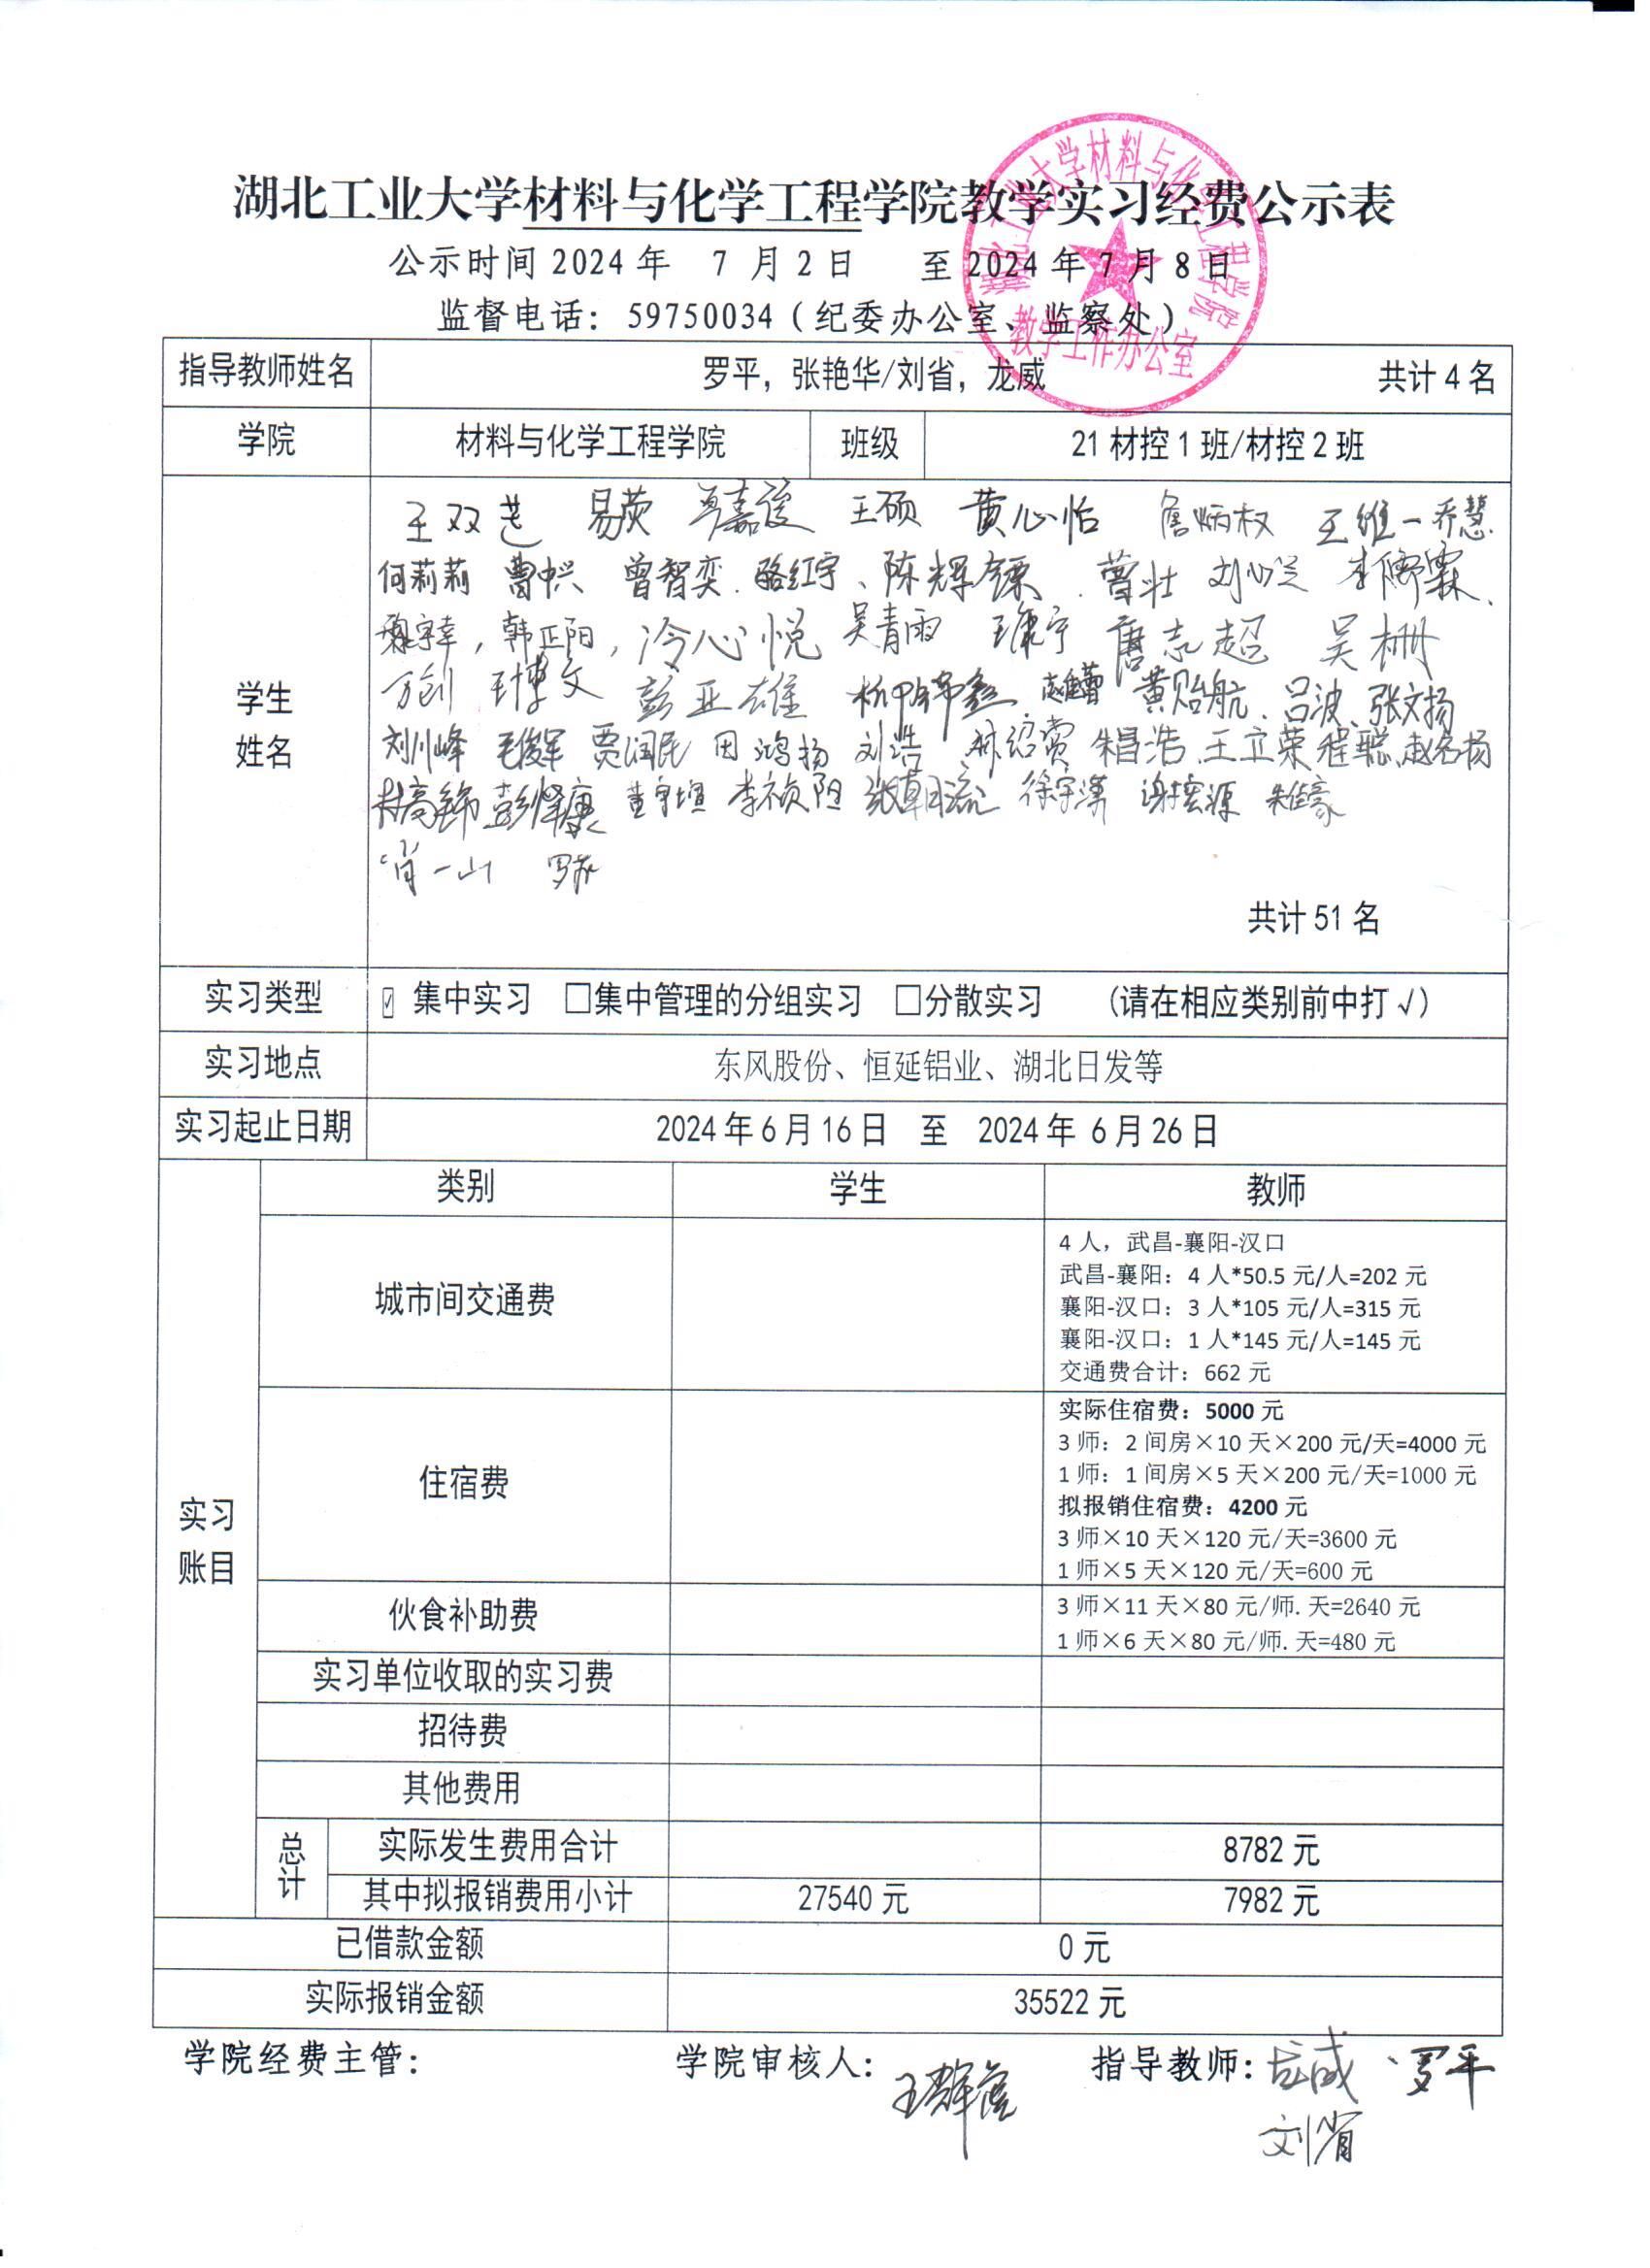 湖北工业大学材料与化学工程学院教学实习经费公示表
公示时间 2024 年 7 月 2 日 至 2024 年 7 月 8 日
监督电话：59750034（纪委办公室、监察处）
教学工作办公室
指导教师姓名 罗平，张艳华/刘省，龙威 共计 4 名
学院 材料与化学工程学院 班级 21 材控 1 班/材控 2 班
王硕 黄心怡 詹炳权 王维一 乔慧
何莉莉 曾智奕 骆红宇、陈辉镖 曾壮
韩正阳，冷心悦 吴青雨 唐志超 吴栅
万创 彭亚雄 黄贻航、吕波、张文扬
学生
姓名
刘川峰 毛俊军 贾润民 田鸿扬 刘浩 林绍赏 朱昌浩 王立荣 程聪 赵名扬
董宇煊 李祯阳 张朝流 徐宇涛 谢宏源 朱佳豪
肖一山
共计 51 名
实习类型 ☑ 集中实习 □集中管理的分组实习 □分散实习 （请在相应类别前中打 √）
实习地点 东风股份、恒延铝业、湖北日发等
实习起止日期 2024 年 6 月 16 日 至 2024 年 6 月 26 日
类别 学生 教师
城市间交通费
4 人，武昌-襄阳-汉口
武昌-襄阳：4 人*50.5 元/人=202 元
襄阳-汉口：3 人*105 元/人=315 元
襄阳-汉口：1 人*145 元/人=145 元
交通费合计：662 元
实习
账目
住宿费
实际住宿费：5000 元
3 师：2 间房×10 天×200 元/天=4000 元
1 师：1 间房×5 天×200 元/天=1000 元
拟报销住宿费：4200 元
3 师×10 天×120 元/天=3600 元
1 师×5 天×120 元/天=600 元
伙食补助费
3 师×11 天×80 元/师.天=2640 元
1 师×6 天×80 元/师.天=480 元
实习单位收取的实习费
招待费
其他费用
总计
实际发生费用合计 8782 元
其中拟报销费用小计 27540 元 7982 元
已借款金额 0 元
实际报销金额 35522 元
学院经费主管： 学院审核人： 指导教师：龙威、罗平
刘省